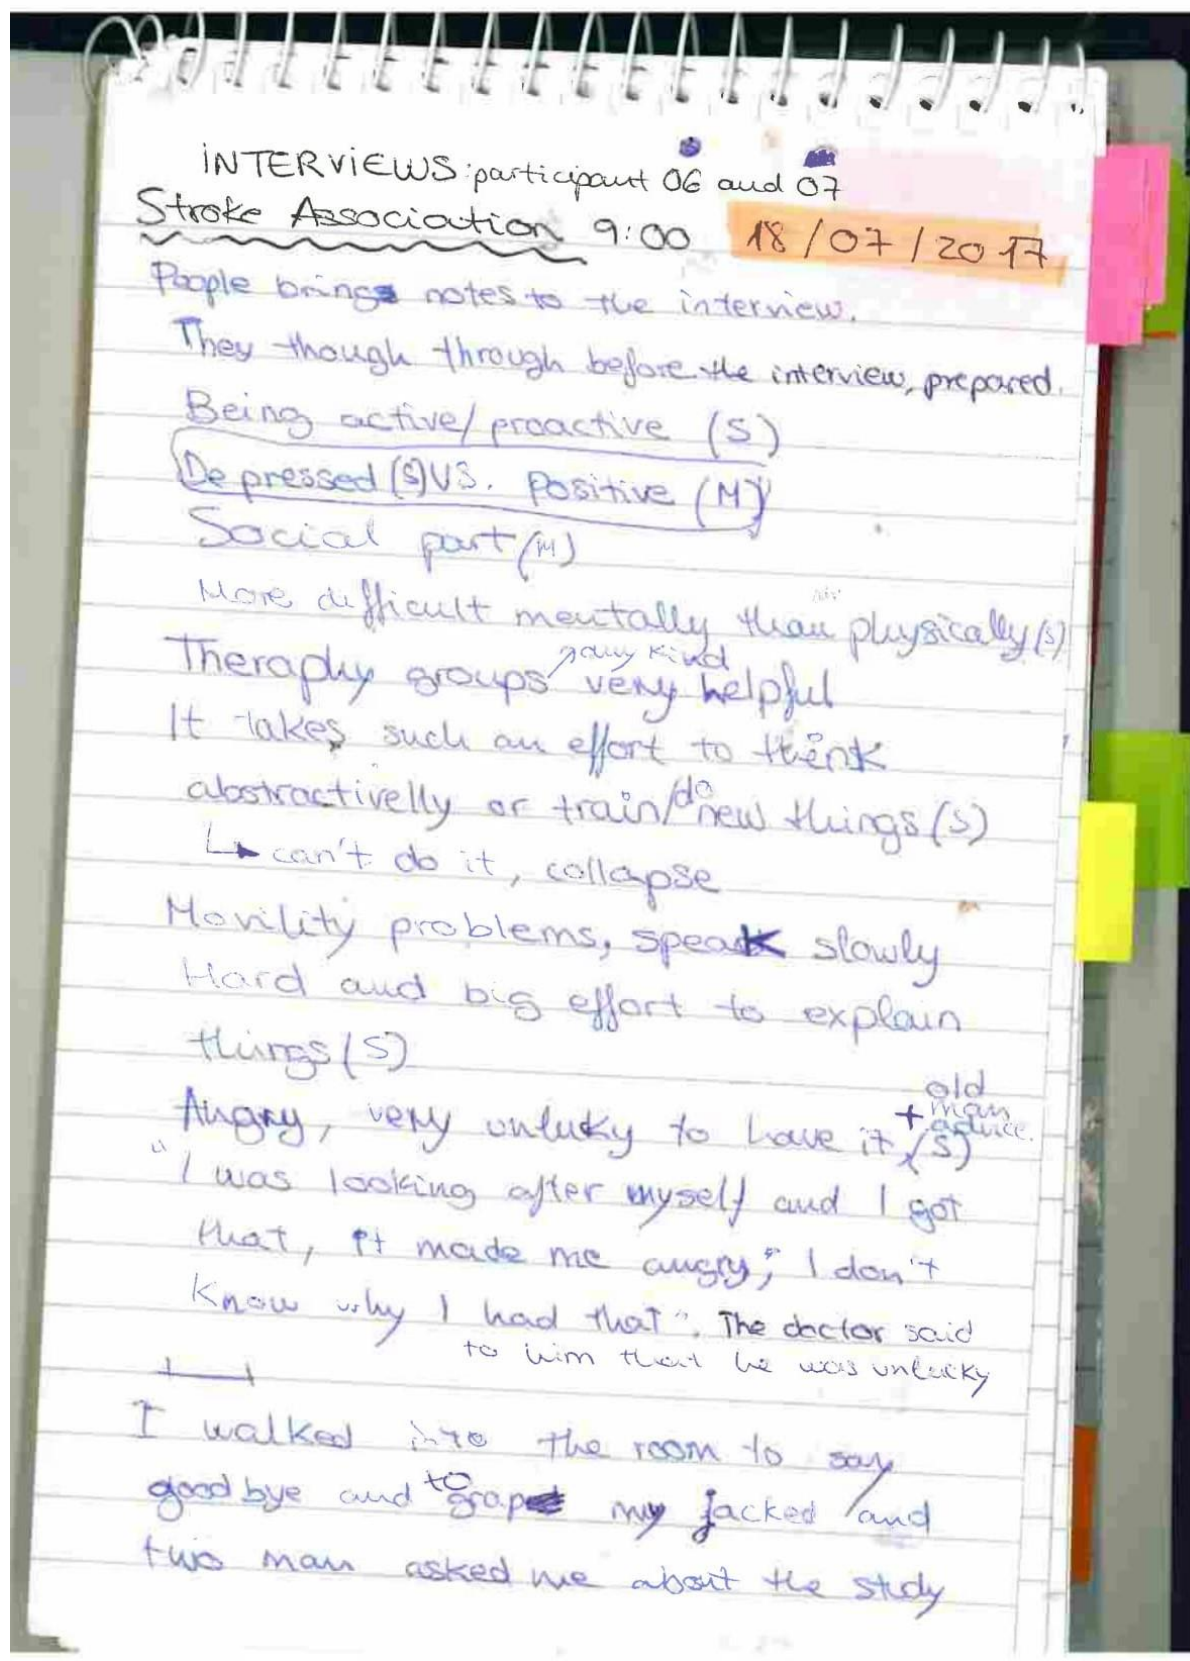 INTERVIEWS: participant 06 and 07
Stroke Association 9:00 18/07/2017
People brings notes to the interview.
They though through before the interview, prepared.
Being active/proactive (S)
Depressed (S) VS. Positive (M)
Social part (M)
More difficult mentally than physically (S)
any kind
Theraphy groups very helpful
It takes such an effort to think
abstractivelly or train/do new things (S)
↳ can't do it, collapse
Movility problems, speak slowly
Hard and big effort to explain
things (S)
old
+ man
advice.
Angry, very unlucky to have it, (S)
"I was looking after myself and I got
that, it made me angry; I don't
know why I had that". The doctor said
to him that he was unlucky
I walked into the room to say
good bye and to grap my jacked / and
two man asked me about the study